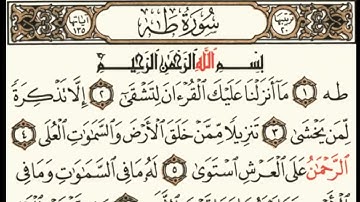 ترتيبها ٢٠ سُورَةُ طه آياتها ١٣٥
بِسْمِ اللَّهِ الرَّحْمَٰنِ الرَّحِيمِ
طه ١ مَآ أَنزَلْنَا عَلَيْكَ ٱلْقُرْءَانَ لِتَشْقَىٰٓ ٢ إِلَّا تَذْكِرَةً
لِّمَن يَخْشَىٰ ٣ تَنزِيلًا مِّمَّنْ خَلَقَ ٱلْأَرْضَ وَٱلسَّمَٰوَٰتِ ٱلْعُلَى ٤
ٱلرَّحْمَٰنُ عَلَى ٱلْعَرْشِ ٱسْتَوَىٰ ٥ لَهُۥ مَا فِى ٱلسَّمَٰوَٰتِ وَمَا فِى